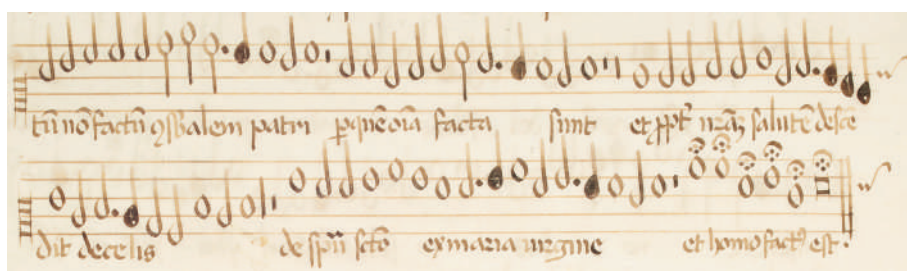 tũ nõ factũ ɔsb̃alem patri p̱ quẽ oĩa facta sunt et ꝓpt̃ nr̃aȝ salutẽ desce
dit de celis de spũ sctõ ex maria uirgine et homo factꝰ est.